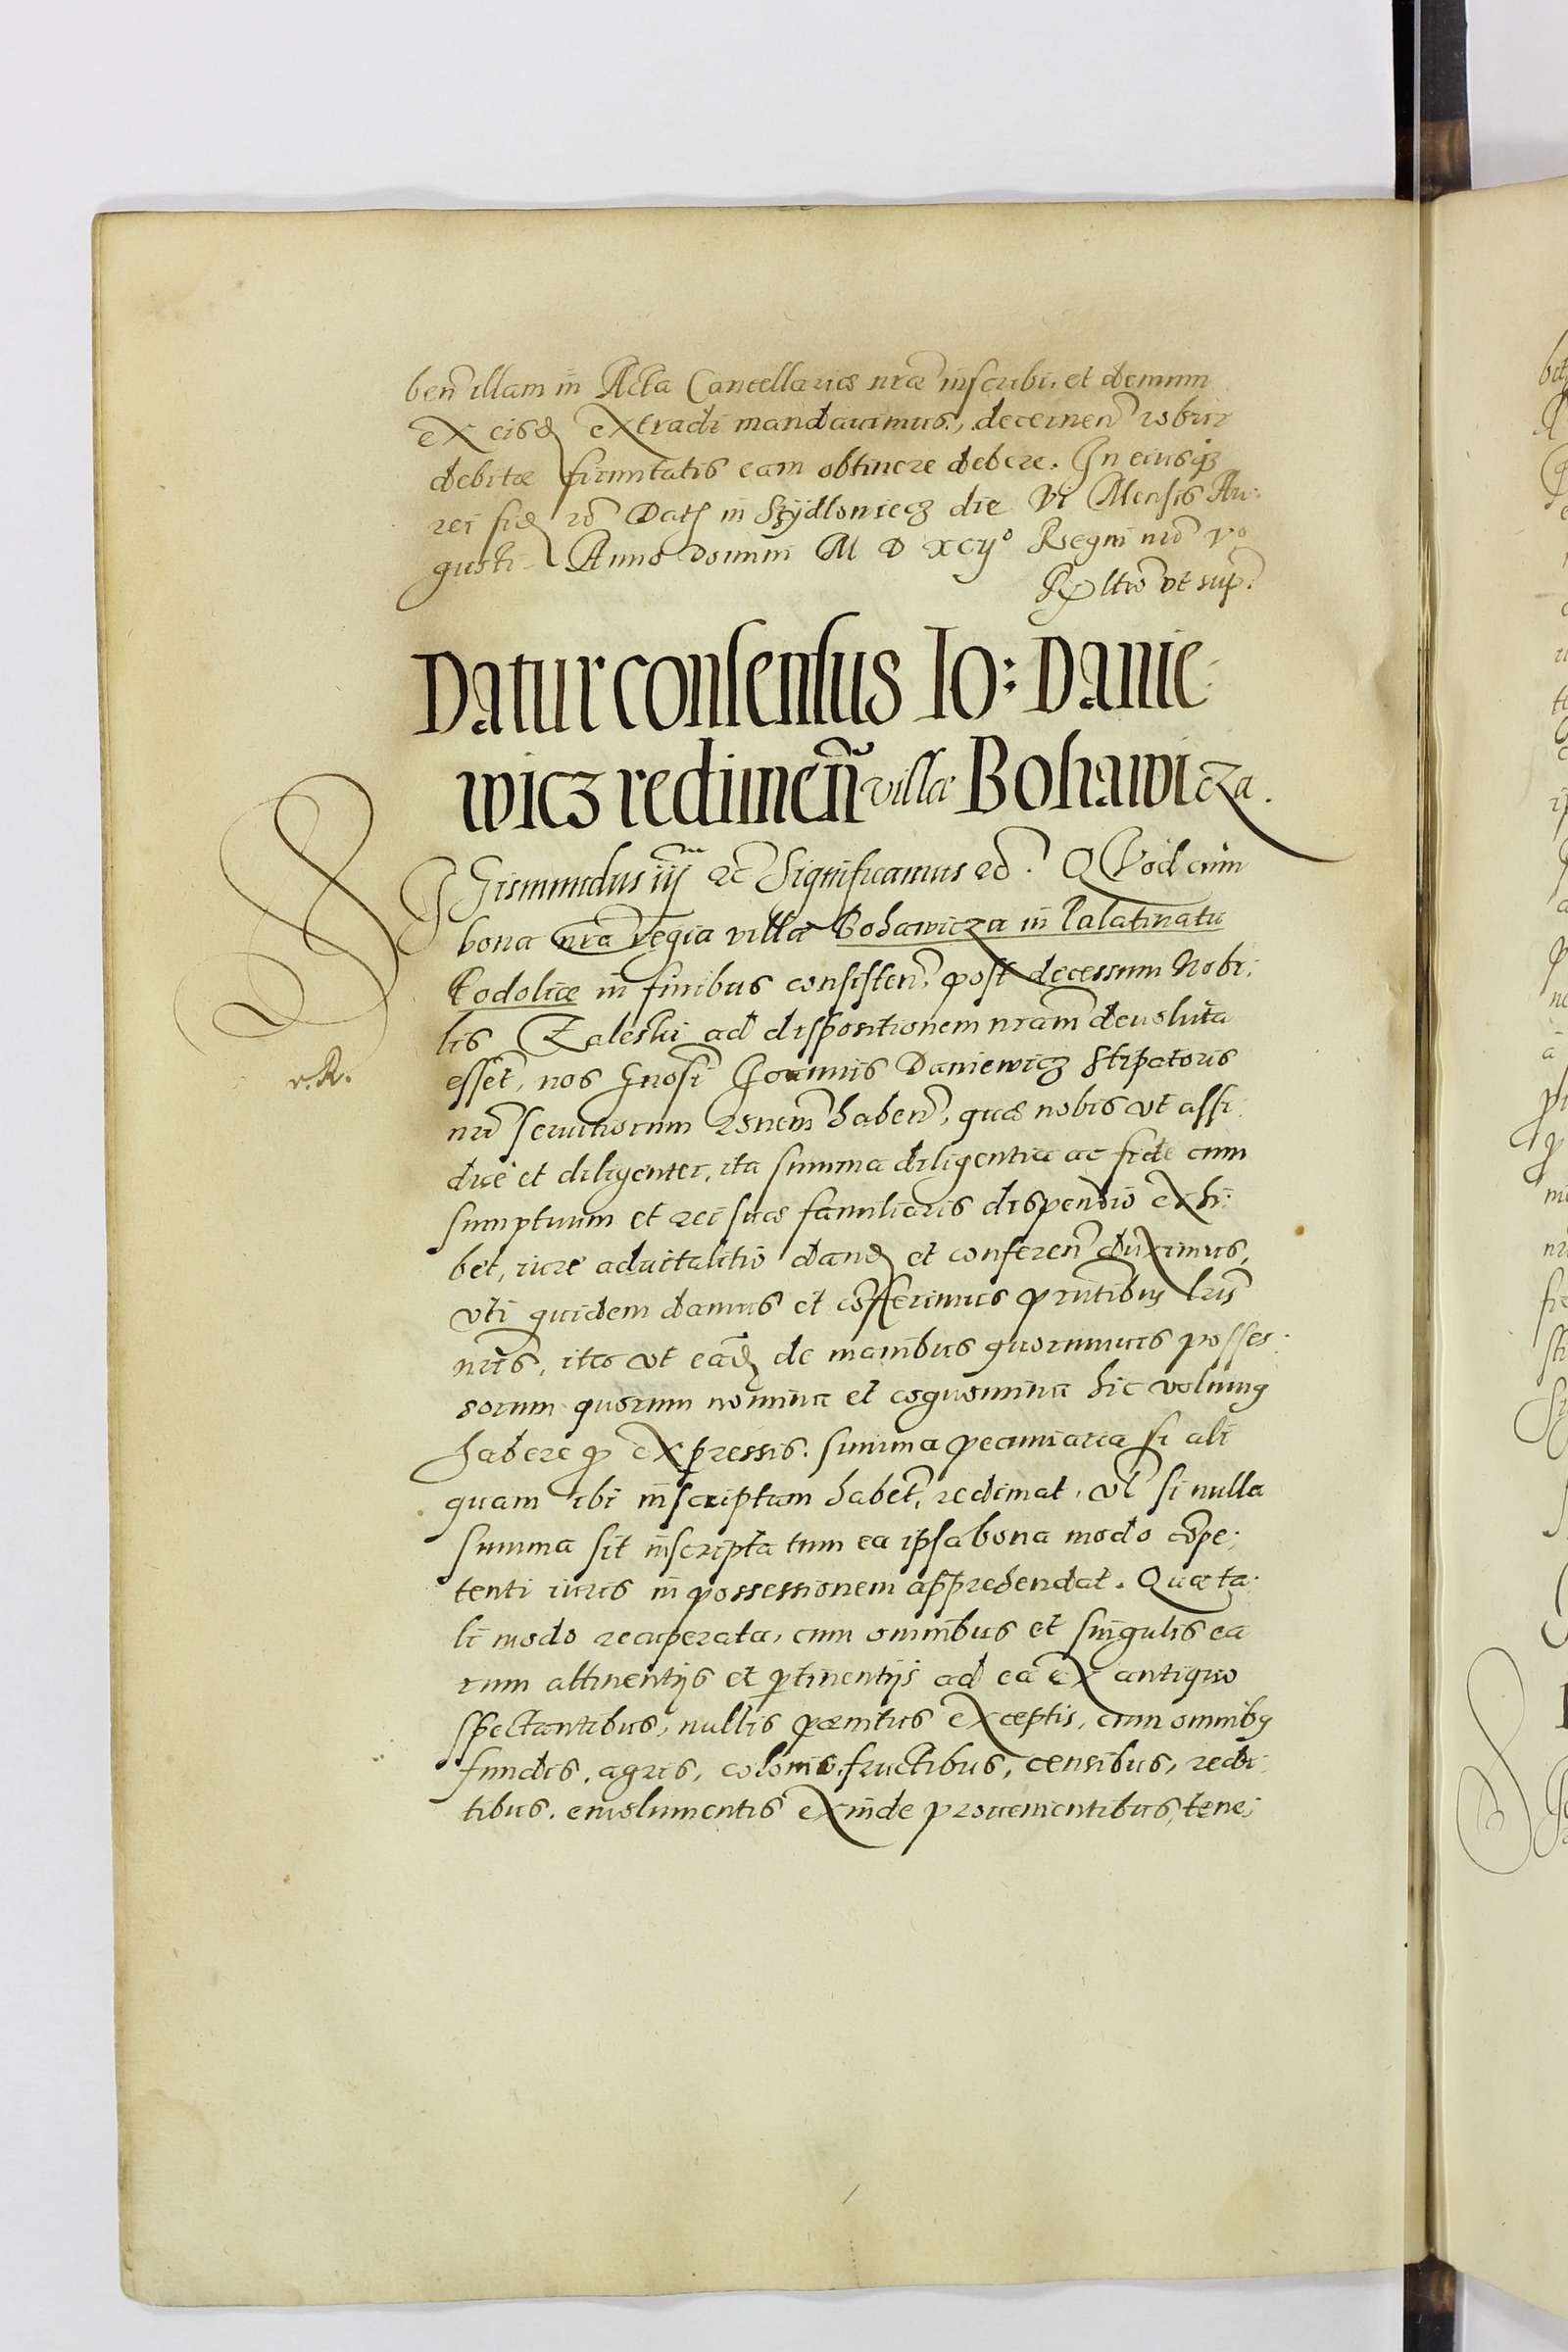 ben̄ illam in Acta Cancellariæ nr̄æ inscribi, et demum
ex eisd. extradi mandauimus, decernen̄ robur
debitæ firmitatis eam obtinere debere. In eiusq3
rei fid. rc̄ Dat. in Szÿdlowiecz die VI Mensis Au:
gusti Anno Domini M D XCIJ° Regni nr̄i vº
Rltio vt sup.
Datur consensus Io: Danie
wicz redimen̄ villæ Bohawicza.
SIGismundus iij rc̄ Significamus rc̄. QVod cum
bona nr̄a regia villæ Bohawicza in Palatinatu
Podoliæ in finibus consisten̄. post decessum Nobi:
lis Zaleski ad dispositionem nr̄am deuoluta
esset, nos Gnosi Joannis Daniewicz Stipatoris
nr̄i seruitiorum rōnem haben̄, quæ nobis vt assi:
due et diligenter, ita summa diligentia ac fide cum
sumptuum et rei suæ familiaris dispendio exhi:
bet, iure aduitalitio dand. et conferen̄ duximus,
vti quidem damus et cōfferimus prn̄tibus lr̄is
nr̄is, ita vt ead. de manibus quorumuis posses:
sorum quorum nomina et cognomina hic volumus
habere p expressis. summa pecuniaria si ali
quam ibi inscriptam habet, redimat, vl̄ si nulla
summa sit inscripta tum ea ipsa bona modo cōpe:
tenti iuris in possessionem apprehendat. Quæ ta:
li modo recuperata, cum omnibus et singulis ea
rum attinentijs et ptinentijs ad ea ex antiquo
spectantibus, nullis pænitus exceptis, cum omnibus
fundis, agris, colonis, fructibus, censibus, reddi
tibus, emolumentis exinde prouenientibus, tene:
r. R.